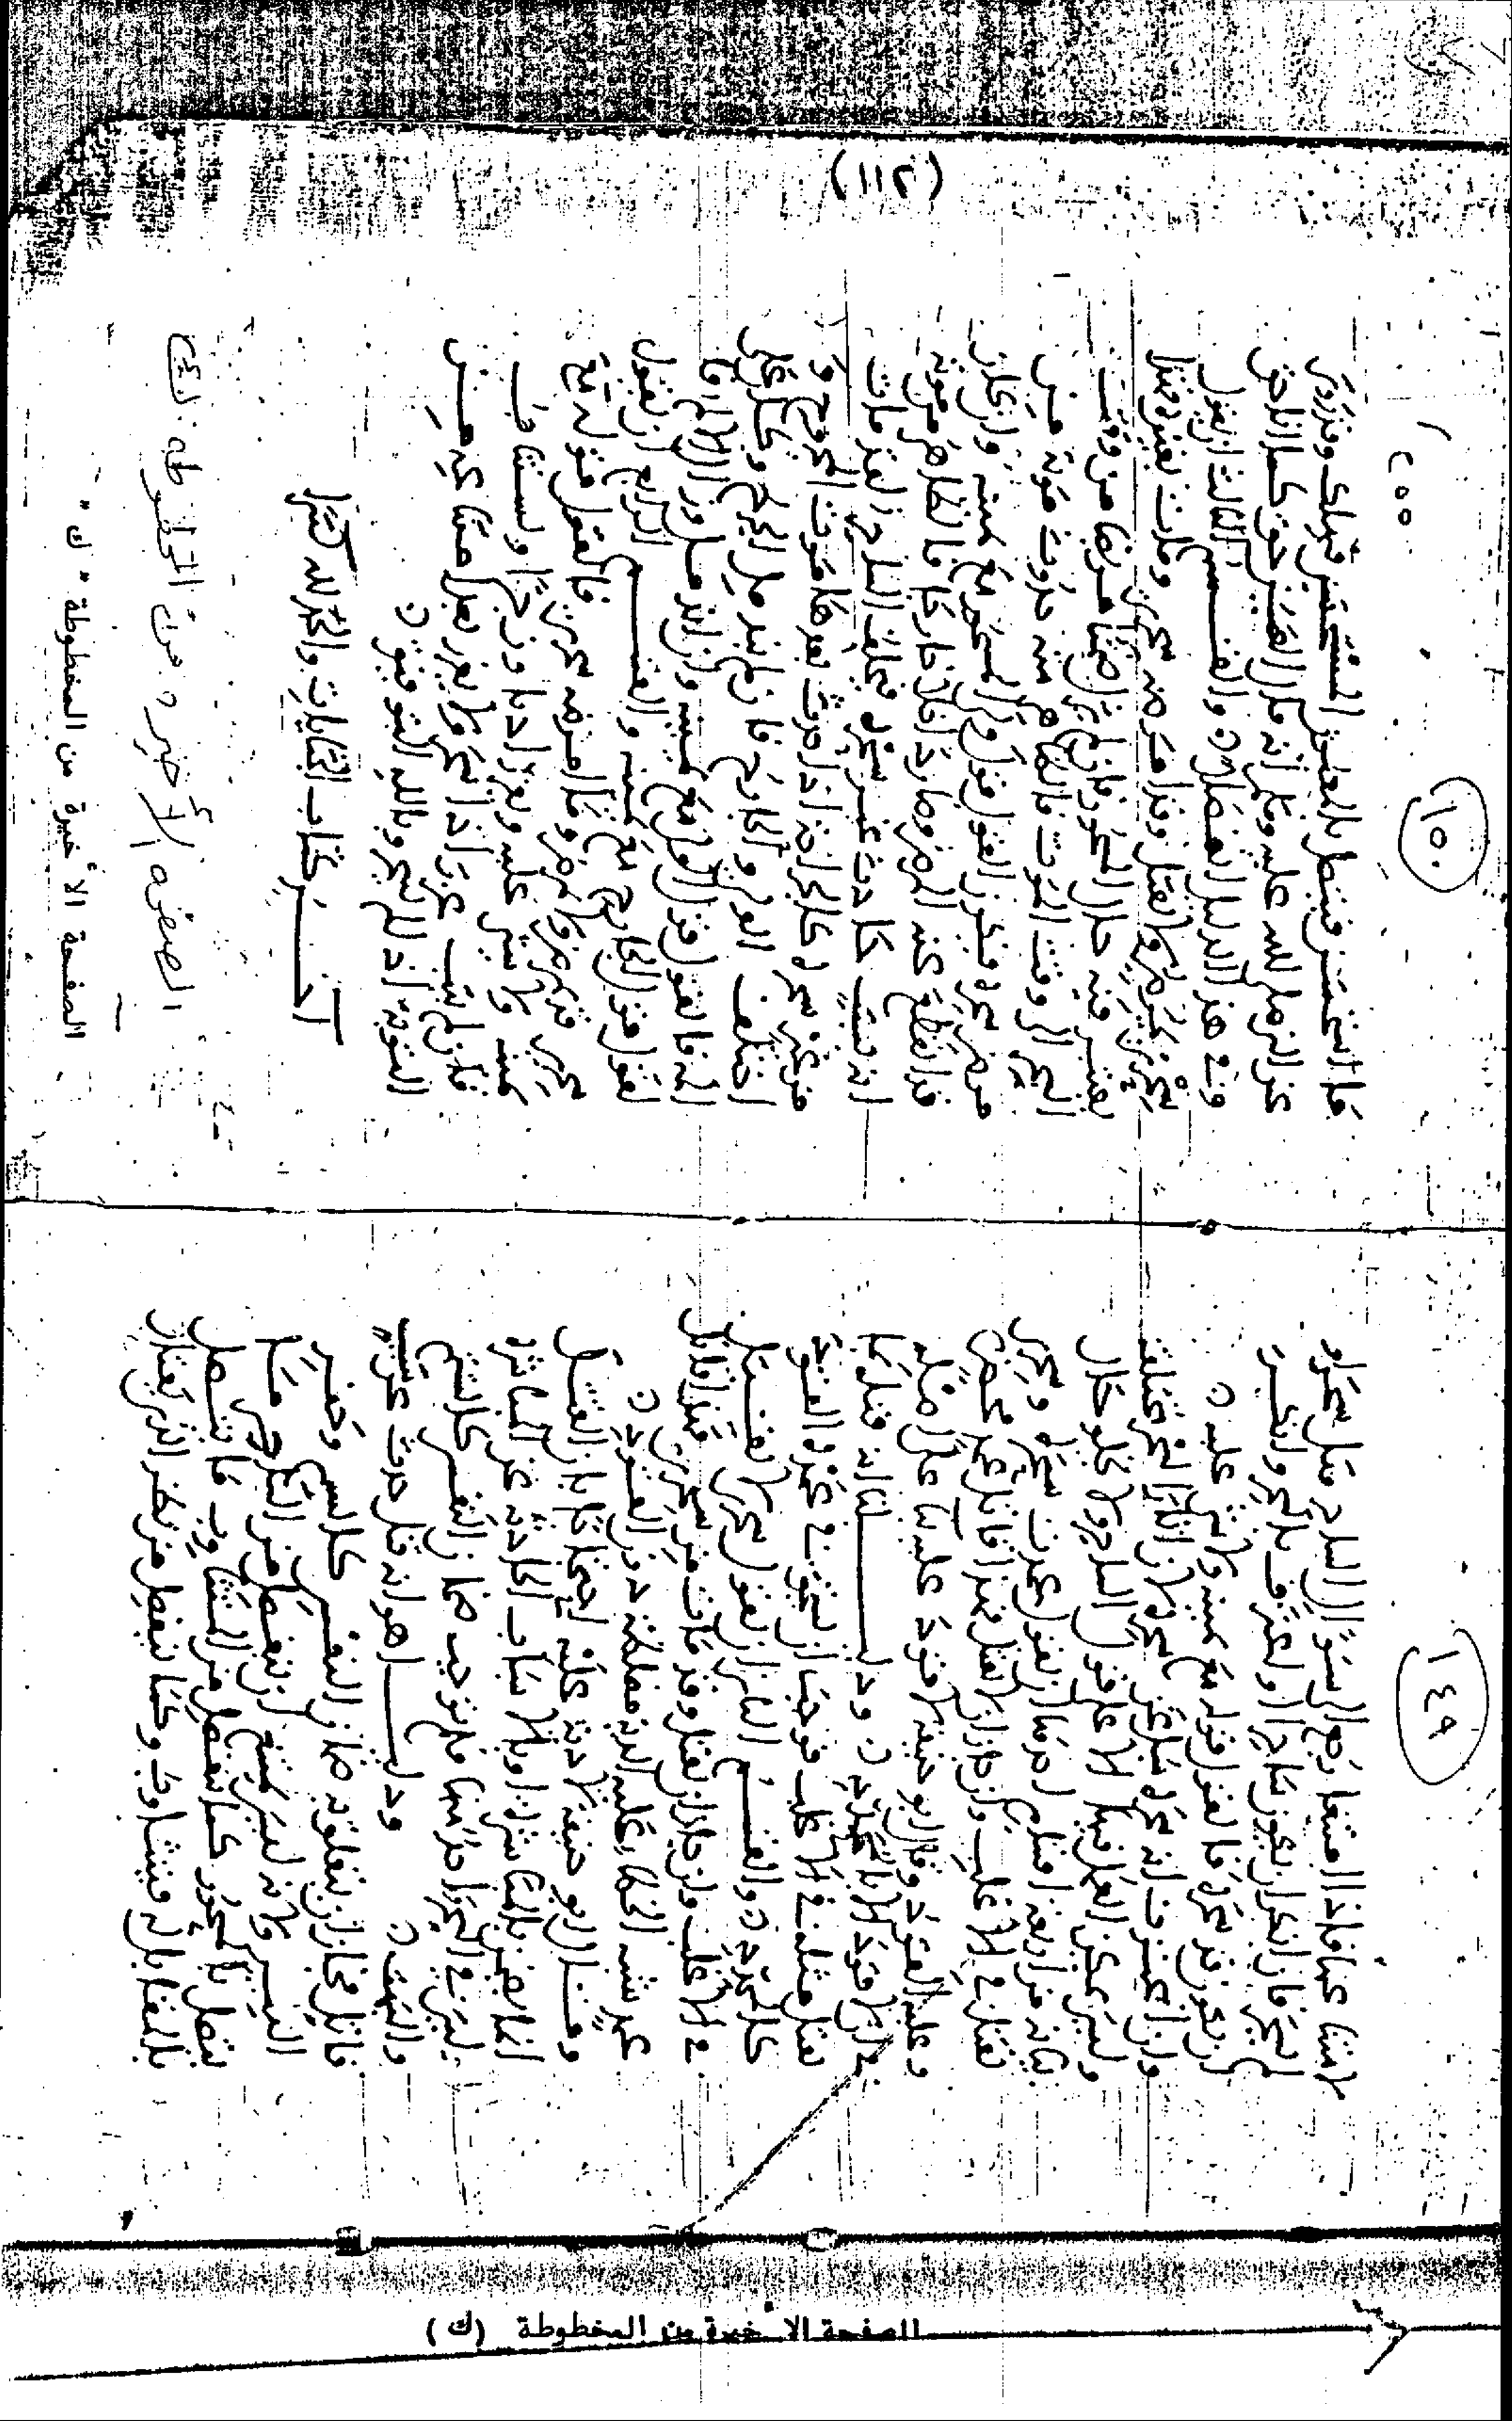 (٢١١)
١٤٩
السحر فان انكر ان يكون ساحرا او اعترف بالسحر وانكر
ان يكون قد سحره فالقول قوله مع يمينه ولا شي عليه
وان اعترف انه سحره سئل عن سحره لان اثار السحر مختلفة
وليس يمكن العمل فيها الا على قول الساحر ولا يخلو حال
بيانه من اربعة اقسام احدها ان يقول عمدت سحره وسحري
يقتل في الاغلب وان جاز ان لا يقتل فهذا قاتل عمد محض
وعليه القود وقال ابو حنيفة لا قود عليه بناء على اصله
في ان لا قود الا بالمحدد ودليلنا انه قتله بما
يقتل مثله في الاغلب فوجب ان يجب فيه القود
كالمحدد والقسم الثاني ان يقول سحري لا يقتل
في الاغلب وان جاز ان يقتل وقد مات من سحري فهذا قاتل
عمد شبه الخطا عليه الدية مغلظة دون القود
وقال ابو حنيفة لا دية عليه احتجاجا بان القتل
انما يضمن بالمباشرة او بالاسباب الحادثة عن المباشرة
وليس في السحر احد منها فلم يوجب ضمان النفس كالشتم
والبهت ودليلنا هو انه قتل حدث عن سبب
قاتل فجاز ان يتعلق به ضمان النفس كالسم وحفر
البير ولانه ليس يمتنع ان ينفصل من الساحر ما
يتصل بالمسحور كما ينفصل من المتثاوب ما يتصل
بالمقابل له فيتثاوب وكما ينفصل من نظر الذي يعتان
١٥٠
ما استحسن فيتصل بالمعيون المستحسن فيهلك وقد روي
عن النبي صلى الله عليه وسلم انه قال العين حق كما ان السحر حق
وفي هذا دليل انفصال والقسم الثالث ان يقول
سحري يمرض ولا يقتل وقد امرضه سحري ومات بغيره فهذا
يعتبر فيه حال المسحور فان لم يزل ضمنا مريضا من وقت
السحر الى وقت الموت فالظاهر منه حدوث موته من
مرض سحره فيكون القول قول ولي المسحور مع يمينه وان كان
قد انقطع عنه المرض وصار داخلا خارجا فالظاهر من موته
انه بسبب حادث غير سحره فيحلف الساحر لقد مات
من غير سحره كالجراحة اذا حدث بعدها موت المجروح و
اختلف الولي والجارح فان لم يندمل الجرح وكان على
المه فالقول قول الولي مع يمينه وان اندمل وزال الالم فا
لقول قول الجارح مع يمينه والقسم الرابع ان يقول
سحري قد يمرض ولا يمرض وما امرضه سحري فالقول قوله مع
يمينه ولا شي عليه ويعزر ادبا وزجرا ويستتاب
فان لم يتب عزر اذا سحر ولا يعزر بعد امتناعه من
التوبة اذا لم يسحر وبالله التوفيق
آخر كتاب الجنايات والحمد لله
الصفحة الأخيرة من المخطوطة
الصفحة الأخيرة من المخطوطة "ك"
الصفحة الأخيرة من المخطوطة (ك)